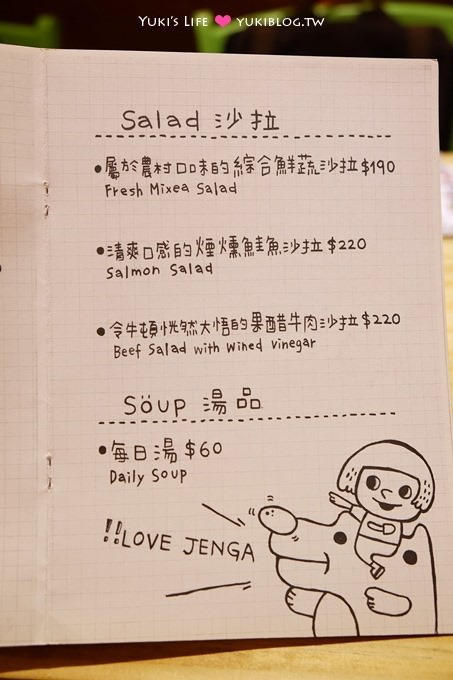 YUKI'S LIFE ♥ YUKIBLOG.TW
Salad 沙拉
•屬於農村口味的綜合鮮蔬沙拉$190
Fresh Mixea Salad
•清爽口感的煙燻鮭魚沙拉$220
Salmon Salad
•令牛頓恍然大悟的果醋牛肉沙拉$220
Beef Salad with Wined vinegar
Söup 湯品
•每日湯$60
Daily Soup
!!LOVE JENGA